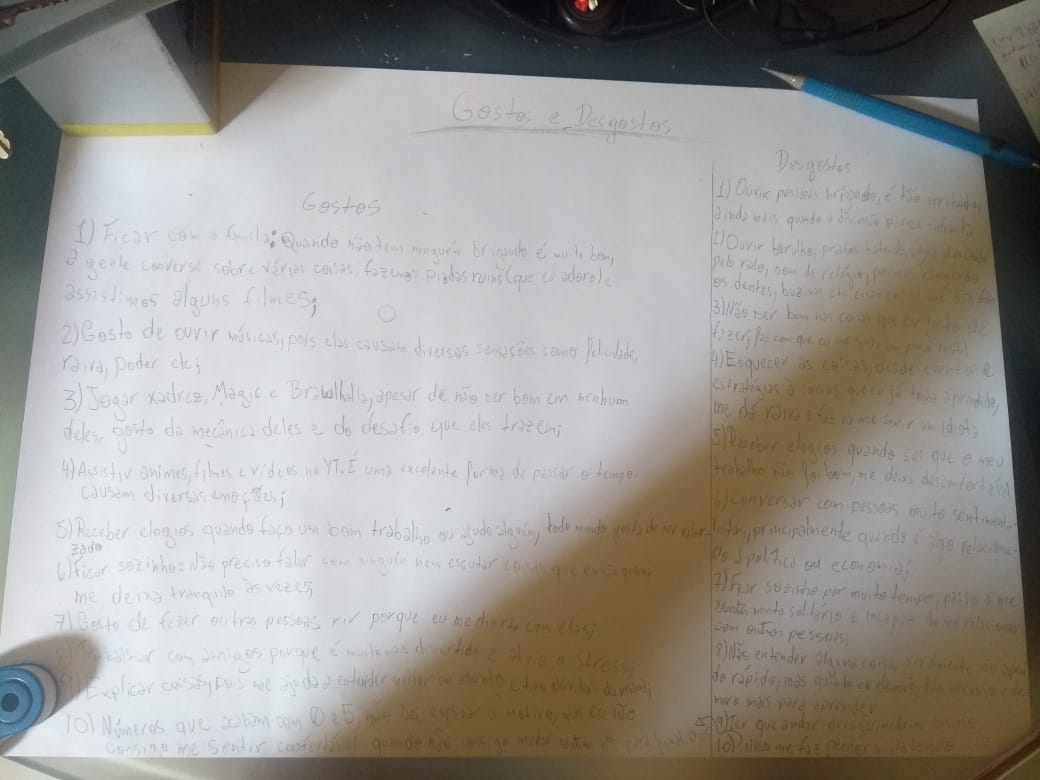 Gostos e Desgostos
Gostos
1) Ficar com a família: Quando não tem ninguém brigando é muito bom,
a gente conversa sobre várias coisas, fazemos piadas ruins (que eu adoro) e
assistimos alguns filmes;
2) Gosto de ouvir músicas, pois elas causam diversas sensações como felicidade,
raiva, poder etc;
3) Jogar xadrez, Magic e Brawlhalla, apesar de não ser bom em nenhum
deles, gosto da mecânica deles e do desafio que eles trazem;
4) Assistir animes, filmes e vídeos no YT. É uma excelente forma de passar o tempo.
causam diversas emoções;
5) Receber elogios quando faço um bom trabalho ou ajudo alguém, todo mundo gosta de ser valori-
zado
6) Ficar sozinho: Não preciso falar com ninguém nem escutar coisas que
me deixa tranquilo às vezes;
7) Gosto de fazer outras pessoas rir porque eu me divirto com elas;
8) Trabalhar com amigos porque é muito mais divertido e alivia o stress;
9) Explicar coisas, pois me ajuda a entender melhor um assunto e tiro dúvidas
10) Números que acabam com 0 e 5, não sei explicar o motivo, mas eu não
consigo me sentir confortável quando não
Desgostos
1) Ouvir pessoas brigando, é tão irritante,
ainda mais quando a discussão parece infinita
2) Ouvir barulho, pratos batendo,
pelo ralo, som de relógio, pessoas rangendo
os dentes, buzina etc essas coisas me dão ódio
3) Não ser bom nas coisas que eu tento
fazer, faz com que eu me sinta um pouco inútil
4) Esquecer as coisas, desde eventos a
estratégias a coisas que eu já tenha aprendido,
me dá raiva e faz eu me sentir um idiota
5) Receber elogios quando sei que o meu
trabalho não foi bom, me deixa desconfortável
6) Conversar com pessoas muito sentimenta-
listas, principalmente quando é algo relaciona-
do a política ou economia;
7) Ficar sozinho por muito tempo, passo a me
sentir muito solitário e incapaz de me relacionar
com outras pessoas;
8) Não entender alguma coisa, geralmente eu apren-
do rápido, mas quando eu demoro, fico nervoso e de-
moro mais para aprender
9) Ter que andar devagar,
10) isso me faz perder muito tempo